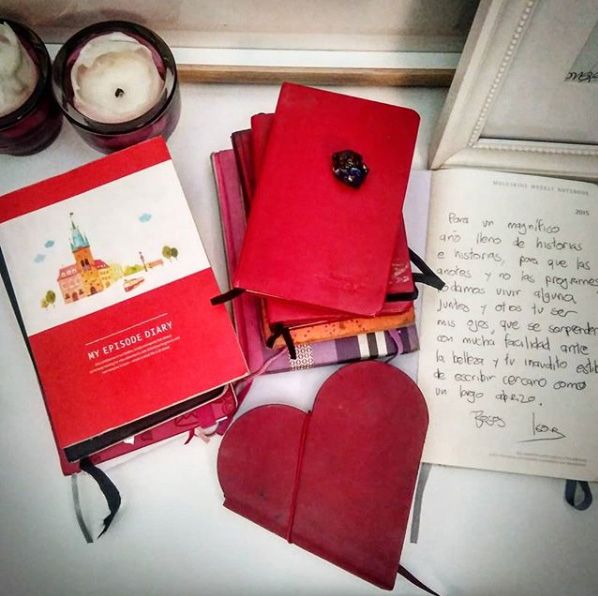 MY EPISODE DIARY
MOLESKINE WEEKLY NOTEBOOK
2015
Para un magnífico
año lleno de historias
e historias, para que las
anotes y no las programes,
podamos vivir alguna
juntos y otras tu ser
mis ojos, que se sorprenden
con mucha facilidad ante
la belleza y tu inaudito estilo
de escribir cercano como
un largo abrazo.
Besos